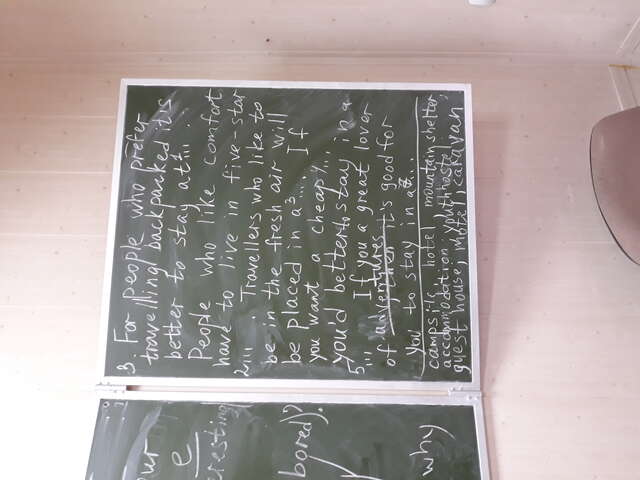 our
e
eresting
bored)?
why
3. For people who prefer
travelling backpacked it's
better to stay at 1... .
People who like comfort
have to live in five-star
2... . Travellers who like to
be in the fresh air will
be placed in a 3.... If
you want a cheap 4...
you'd better to stay in a
5... If you a great lover
of adventures then it's good for
you to stay in a
campsite, hotel, mountain shelter
accommodation; youth hostel;
guest house; motel; caravan